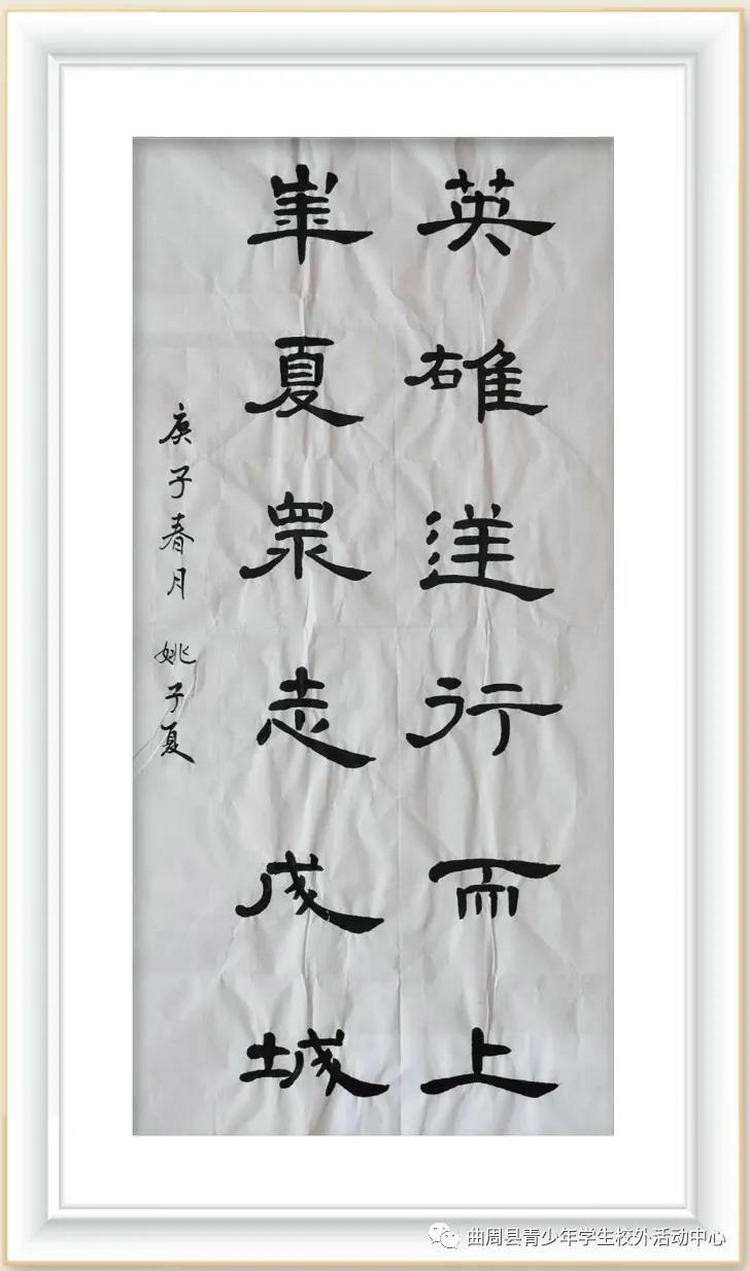 英雄逆行而上
華夏眾志成城
庚子春月 姚子夏
曲周县青少年学生校外活动中心